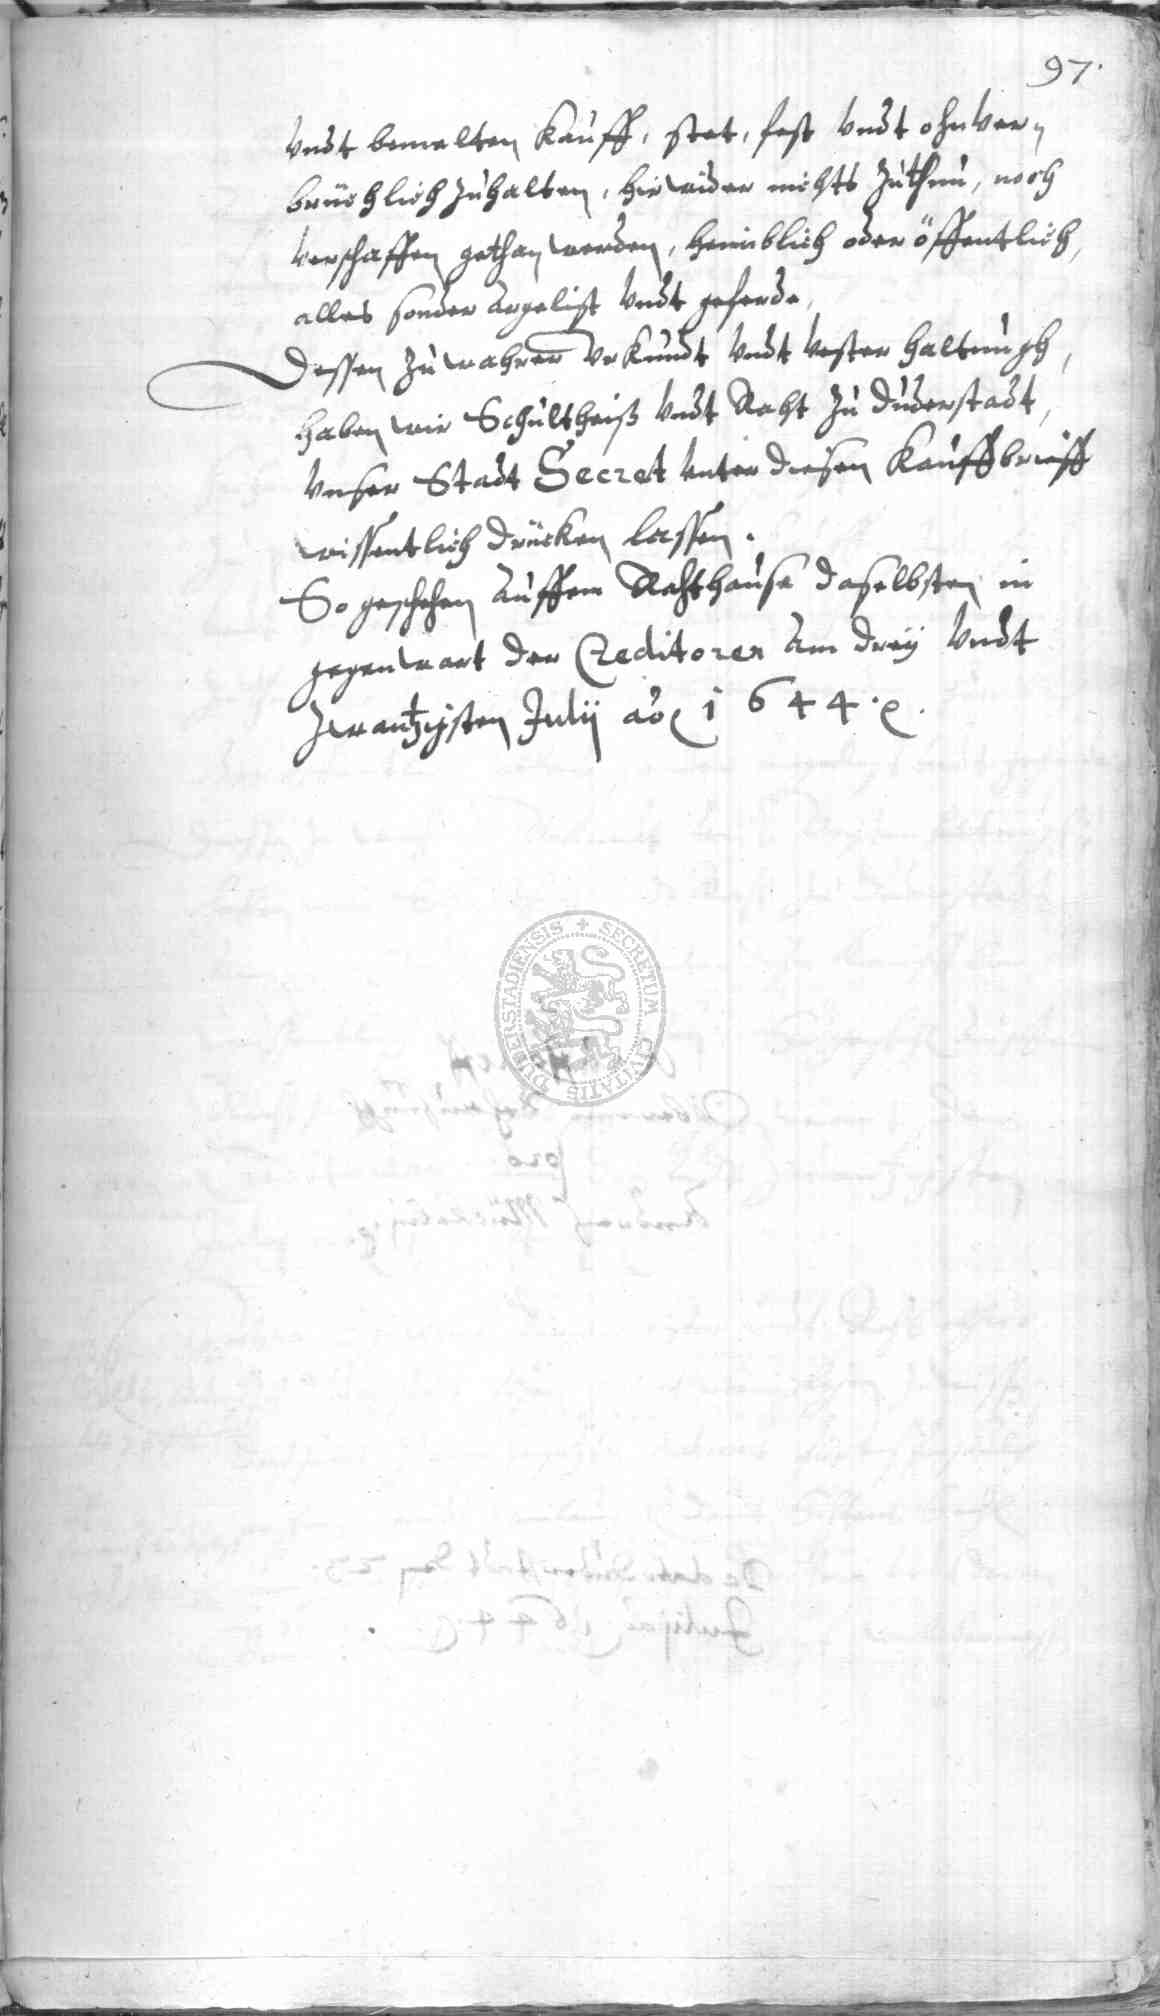 97.
Vndt bemelten Kauff, stet, fest Vndt ohnver-
brüchlich zuhalten, hirwider nichts zuthun, noch
verschaffen gethan werden, heimblich oder öffentlich,
alles sonder Argelist Vndt geferde,
Dessen zu wahrer Vrkundt Vndt Vester haltungh,
haben wir Schultheiß Vndt Raht zu Duderstadt,
Vnser Stadt Secret vnter diesen Kauffbrieff
wissentlich drücken lassen.
So geschehen Auffem Rahthause daselbsten in
gegenwart der Creditoren Am drey Vndt
zwantzigsten Julij ao 1644.
SECRETUM CIVITATIS DUDERSTADIENSIS